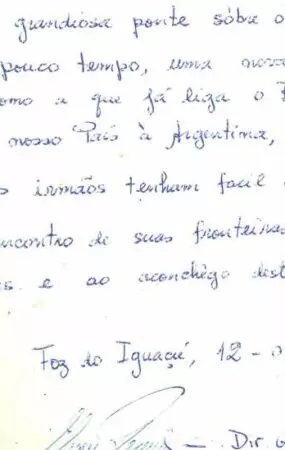 grandiosa ponte sôbre o
pouco tempo, uma nova
como a que já liga o
nosso País à Argentina,
irmãos tenham facil
encontro de suas fronteiras
e ao aconchêgo dest
Foz do Iguaçú, 12 - 0
- Dir